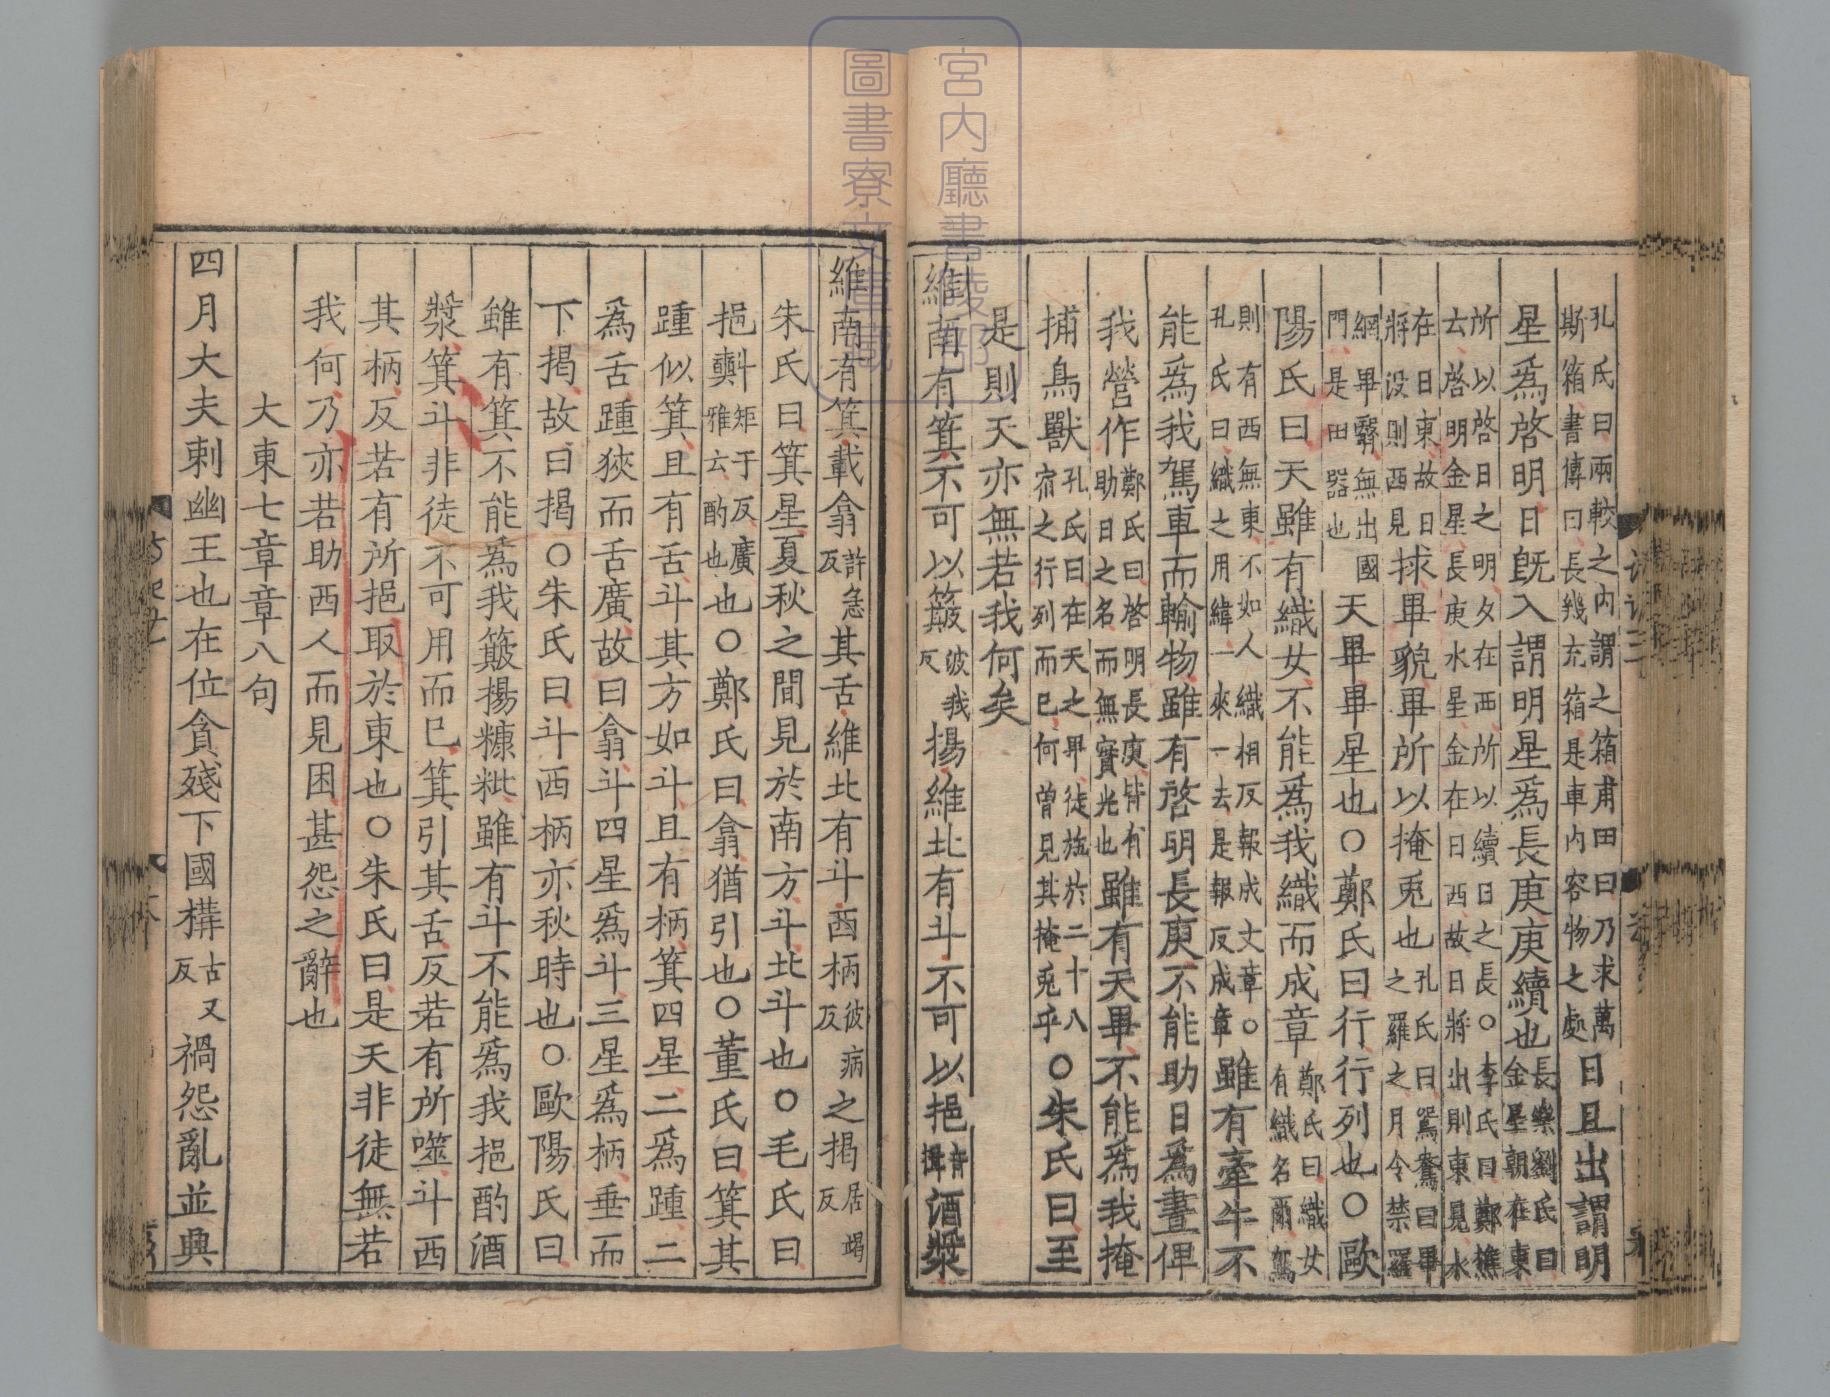 孔氏曰兩較之内謂之箱甫田曰乃求萬
斯箱書傳曰長幾充箱是車内容物之處
日且出謂明
星爲啓明日旣入謂明星爲長庚庚續也
長樂劉氏曰
金星朝在東
所以啓日之明夕在西所以續日之長○李氏曰鄭樵
去啓明金星長庚水星金在日西故日將出則東見水
在日東故日
將没則西見
捄畢貌畢所以掩兎也
孔氏曰鴛鴦曰畢
之羅之月令禁羅
網畢翳無出國
門是田器也
天畢畢星也○鄭氏曰行行列也○歐
陽氏曰天雖有織女不能爲我織而成章
鄭氏曰織女
有織名爾駕
則有西無東不如人織相反報成文章○
孔氏曰織之用緯一來一去是報反成章
雖有牽牛不
能爲我駕車而輸物雖有啓明長庚不能助日爲晝俾
我營作
鄭氏曰啓明長庚皆有
助日之名而無實光也
雖有天畢不能爲我掩
捕鳥獸
孔氏曰在天之畢徒施於二十八
宿之行列而已何曾見其掩兎乎
○朱氏曰至
是則天亦無若我何矣
維南有箕不可以簸
波我
反
揚維北有斗不可以挹
音
揖
酒漿
維南有箕載翕
許急
反
其舌維北有斗西柄
彼病
反
之揭
居竭
反
朱氏曰箕星夏秋之間見於南方斗北斗也○毛氏曰
挹㪺
矩于反廣
雅云酌也
也○鄭氏曰翕猶引也○董氏曰箕其
踵似箕且有舌斗其方如斗且有柄箕四星二爲踵二
爲舌踵狹而舌廣故曰翕斗四星爲斗三星爲柄垂而
下揭故曰揭○朱氏曰斗西柄亦秋時也○歐陽氏曰
雖有箕不能爲我簸揚糠粃雖有斗不能爲我挹酌酒
漿箕斗非徒不可用而已箕引其舌反若有所噬斗西
其柄反若有所挹取於東也○朱氏曰是天非徒無若
我何乃亦若助西人而見困甚怨之辭也
大東七章章八句
四月大夫刺幽王也在位貪殘下國構
古又
反
禍怨亂並興
宮内廳書陵部
圖書寮文庫藏